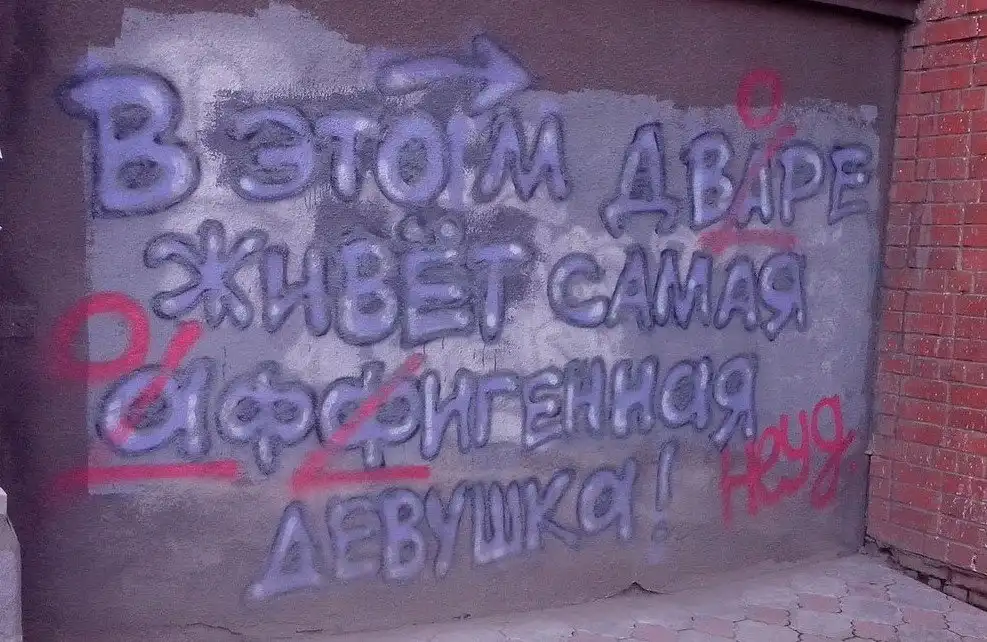 В ЭТОМ ДВАРЕ
ЖИВЁТ САМАЯ
аффигенная
ДЕВУШКА!
о
о
неуд.